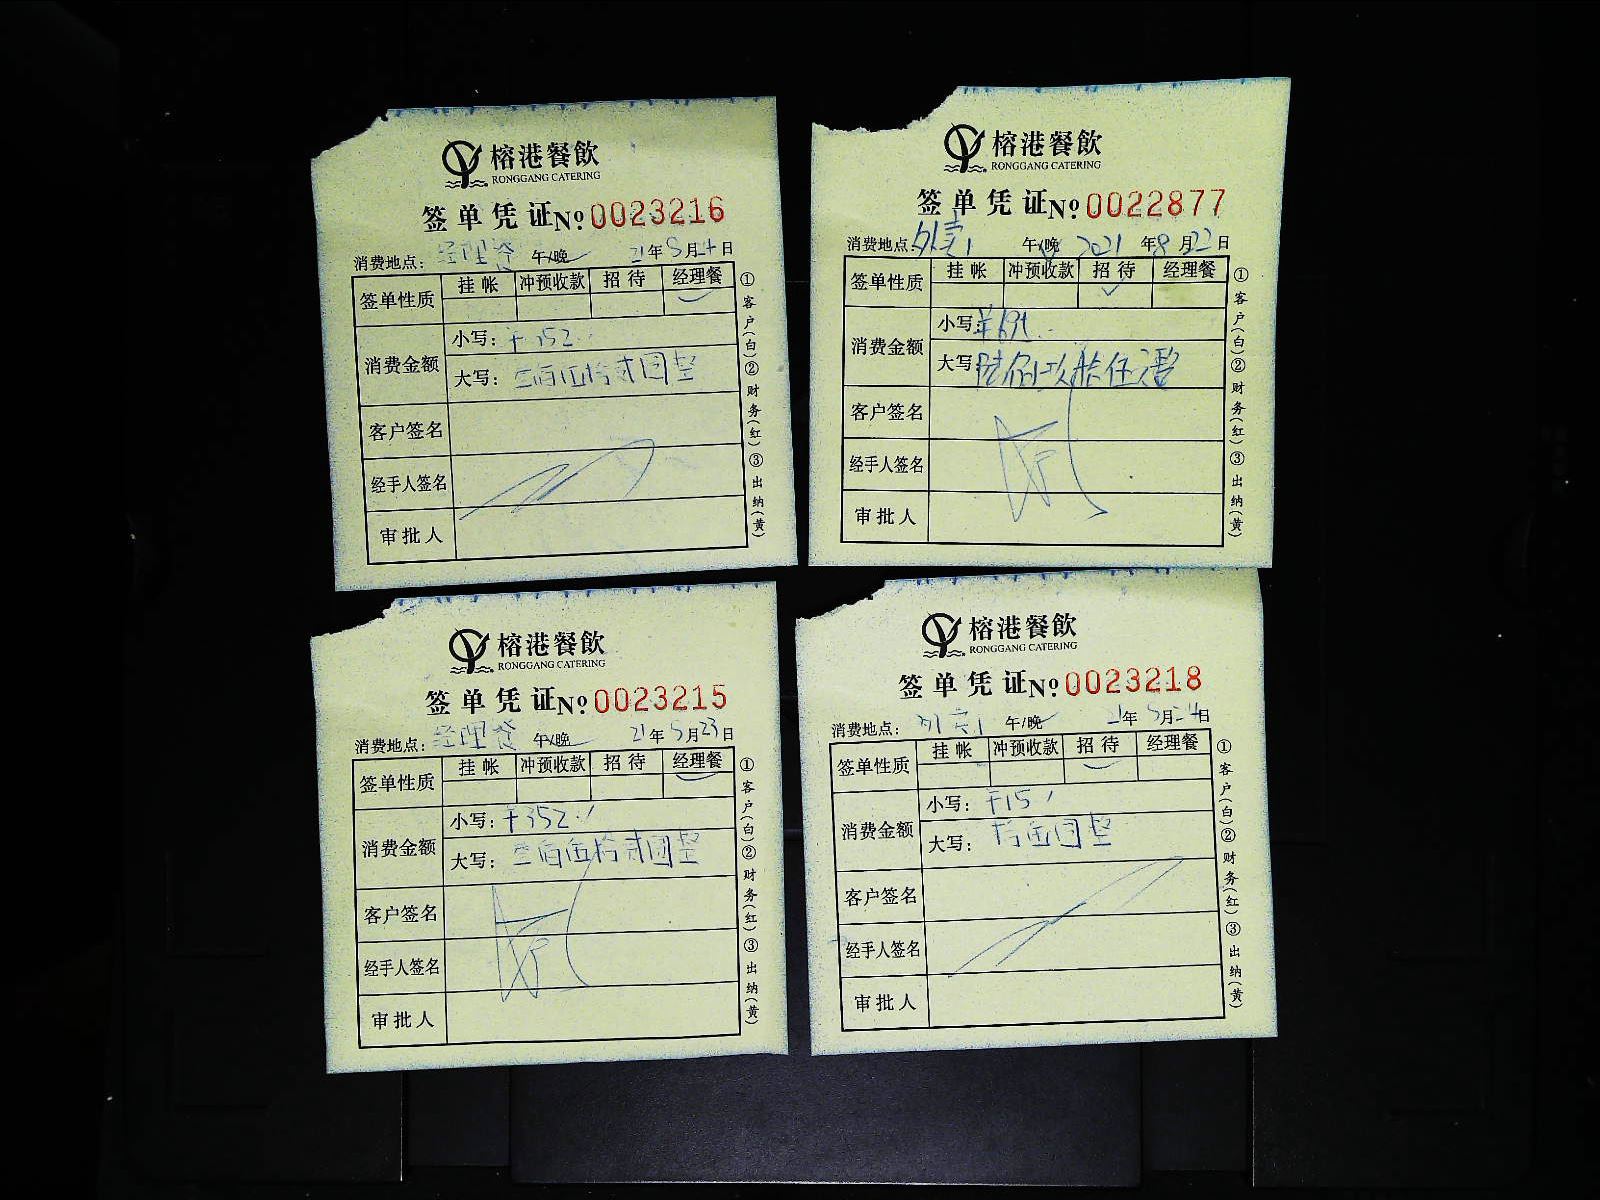 榕港餐飲
RONGGANG CATERING
签单凭证№0023216
消费地点：经理餐 午/晚 21年8月24日
签单性质 挂帐 冲预收款 招待 经理餐
消费金额 小写：¥352
大写：叁佰伍拾贰圆整
客户签名
经手人签名
审批人
①客户(白)②财务(红)③出纳(黄)
榕港餐飲
RONGGANG CATERING
签单凭证№0022877
消费地点：外卖1 午/晚 2021年8月22日
签单性质 挂帐 冲预收款 招待 经理餐
消费金额 小写：¥695
大写：陆佰玖拾伍元整
客户签名
经手人签名
审批人
①客户(白)②财务(红)③出纳(黄)
榕港餐飲
RONGGANG CATERING
签单凭证№0023215
消费地点：经理餐 午/晚 21年8月23日
签单性质 挂帐 冲预收款 招待 经理餐
消费金额 小写：¥352
大写：叁佰伍拾贰圆整
客户签名
经手人签名
审批人
①客户(白)②财务(红)③出纳(黄)
榕港餐飲
RONGGANG CATERING
签单凭证№0023218
消费地点：外卖1 午/晚 21年8月24日
签单性质 挂帐 冲预收款 招待 经理餐
消费金额 小写：¥15
大写：拾伍圆整
客户签名
经手人签名
审批人
①客户(白)②财务(红)③出纳(黄)